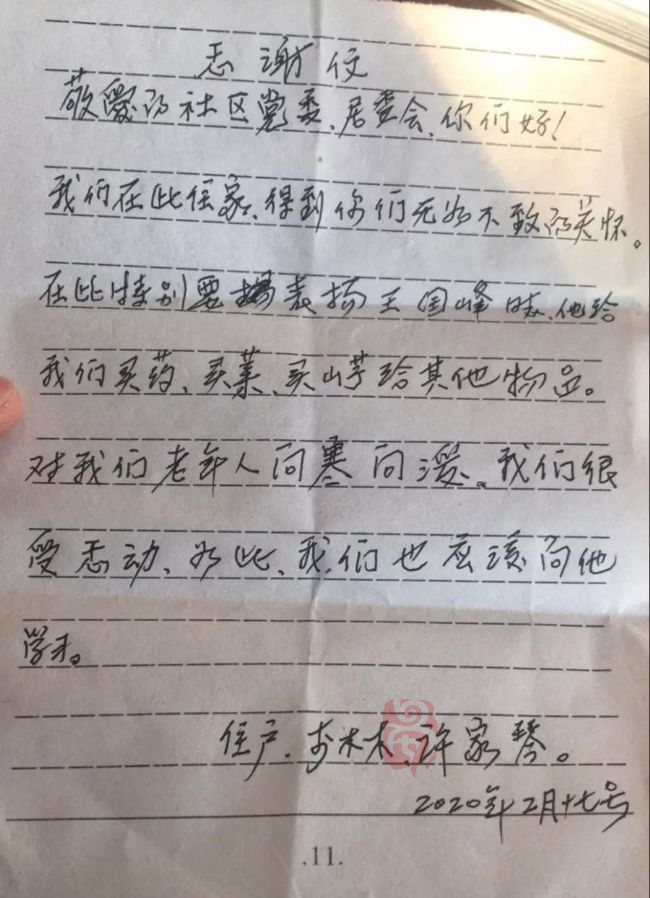 志谢信
敬爱的社区党委、居委会、你们好！
我们在此住家、得到你们无为不致的关怀。
在此特别要表扬王国峰、他给
我们买药、买菜、买给其他物品。
对我们老年人问寒问暖。我们很
受志动、为此、我们也应该向他
学习。
住户、木 许家琴。
2020年2月十七号
.11.